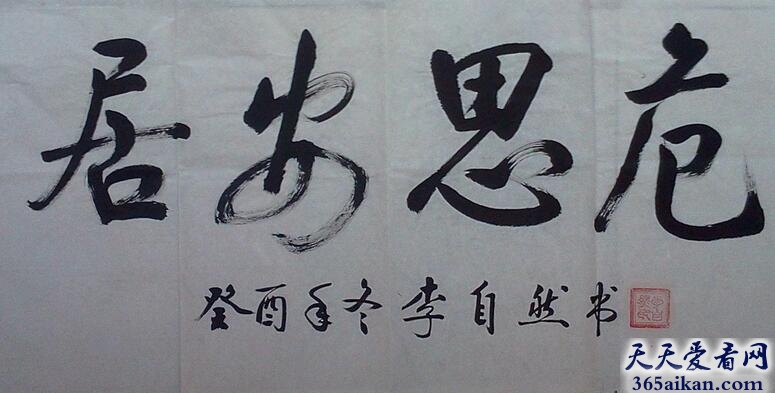 居安思危
癸酉年冬李自然书
天天爱看网
365aikan.com